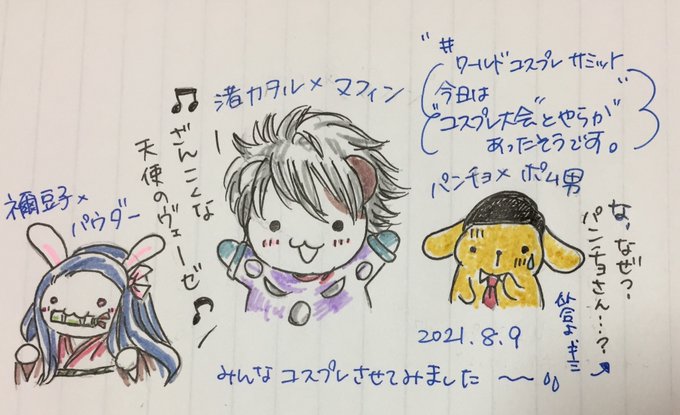 "#ワールドコスプレサミット"
今日は
"コスプレ大会"とやらが
あったそうです。
渚カヲル×マフィン
ざんこくな
天使のヴェーゼ
禰豆子×
パウダー
パンチョ×ポム男
な、なぜっ、
パンチョさん…?
2021.8.9
みんなコスプレさせてみました〜〜